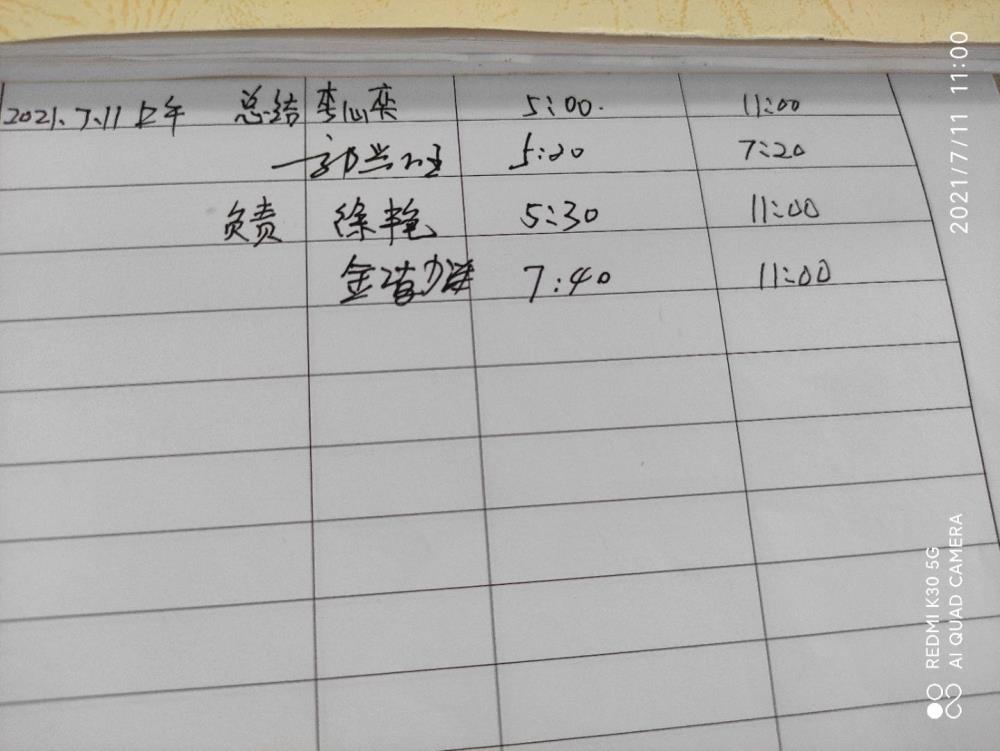 2021.7.11 上午 总结 李心栾 5:00. 11:00
5:20 7:20
负责 徐艳 5:30 11:00
金 7:40 11:00
2021/7/11 11:00
REDMI K30 5G
AI QUAD CAMERA